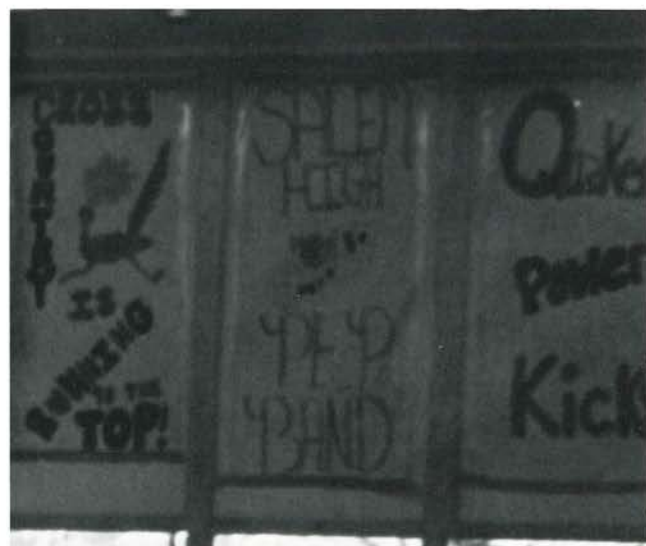 CROSS
COUNTRY
IS
RUNNING
TO THE
TOP!
SALEM
HIGH
PEP
BAND
Quaker
Power
Kicks